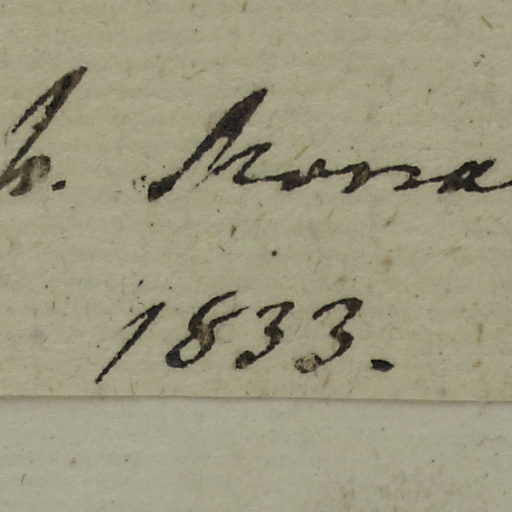 h. Mona
1833.